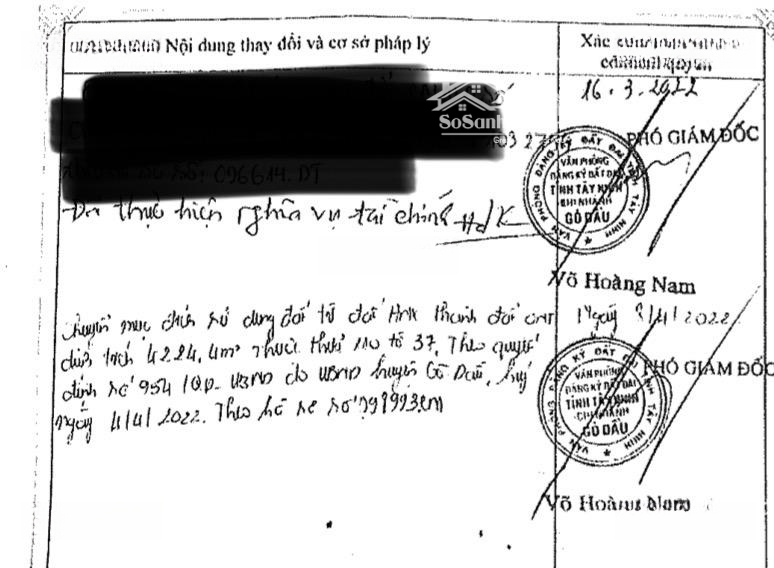 Nội dung thay đổi và cơ sở pháp lý
Xác
16.3.2022
SoSanh
PHÓ GIÁM ĐỐC
VĂN PHÒNG ĐĂNG KÝ ĐẤT ĐAI TỈNH TÂY NINH
VĂN PHÒNG
ĐĂNG KÝ ĐẤT ĐAI
TỈNH TÂY NINH
CHI NHÁNH
GÒ DẦU
số: 096614.DT
Đã thực hiện nghĩa vụ tài chính
Võ Hoàng Nam
Chuyển mục đích sử dụng đất từ đất HNK thành đất ONT
diện tích 4224,4m² thuộc thửa 110 tờ 37. Theo quyết
định số 954/QĐ-UBND do UBND huyện Gò Dầu, ký
ngày 4/4/2022. Theo hồ sơ số
Ngày 8/4/2022
PHÓ GIÁM ĐỐC
VĂN PHÒNG ĐĂNG KÝ ĐẤT ĐAI TỈNH TÂY NINH
VĂN PHÒNG
ĐĂNG KÝ ĐẤT ĐAI
TỈNH TÂY NINH
CHI NHÁNH
GÒ DẦU
Võ Hoàng Nam